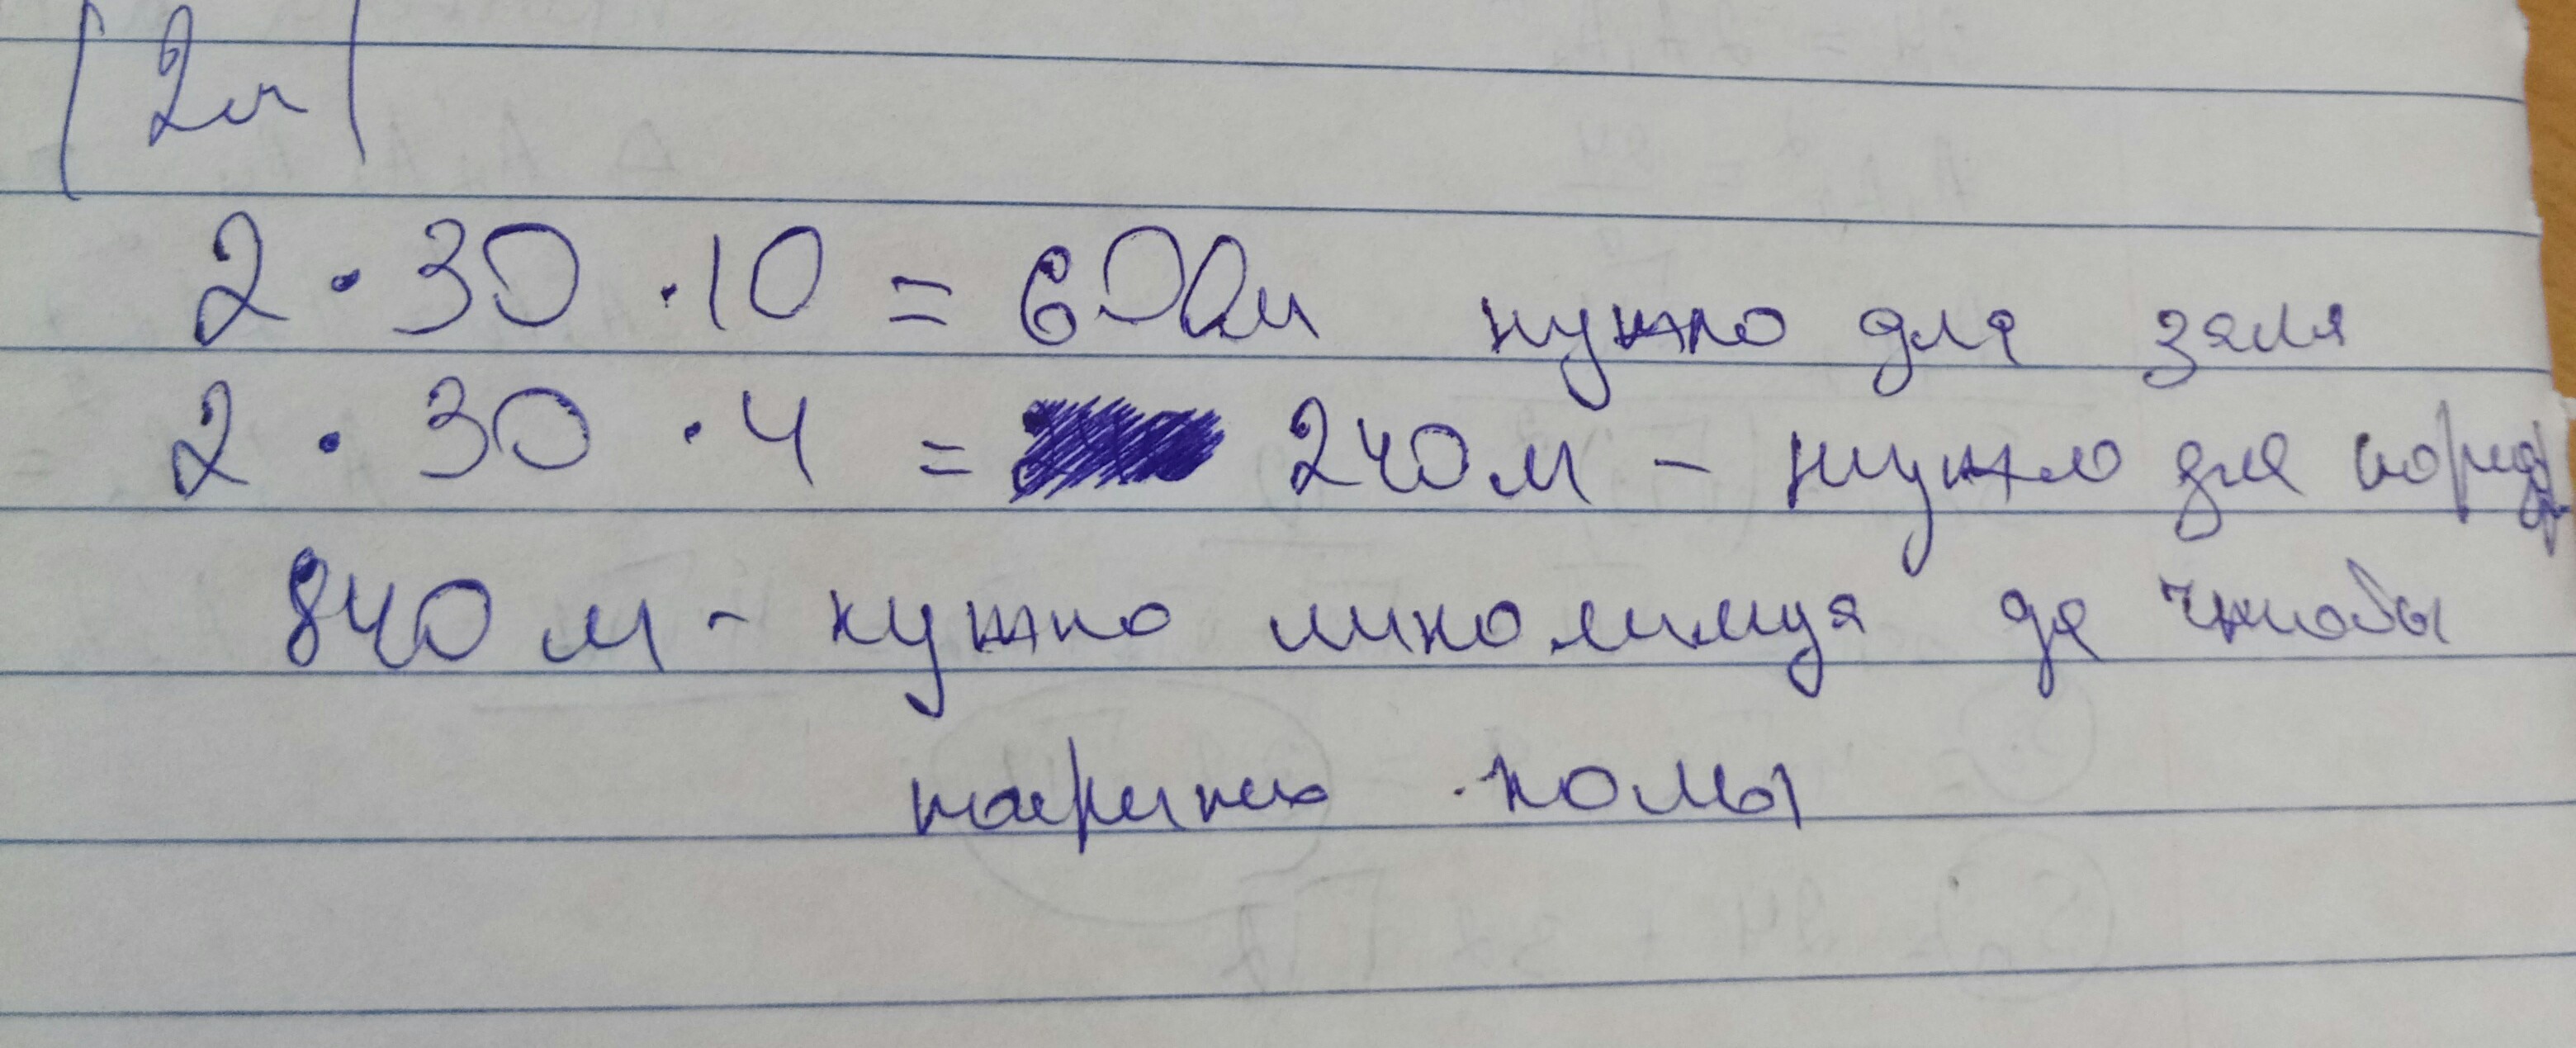 2м
2 · 30 · 10 = 600м нужно для зала
2 · 30 · 4 = 240м - нужно для корид
840 м - нужно линолимуа да чтобы
покрыть полы